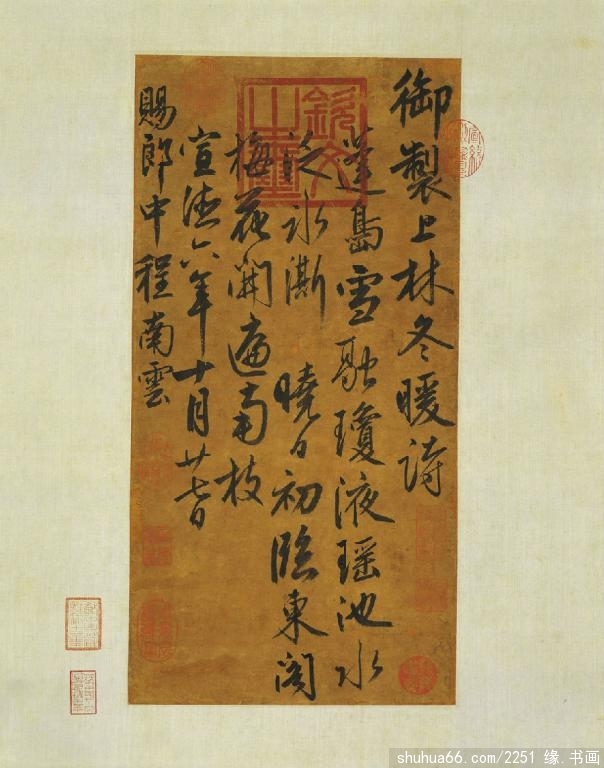 御製上林冬暖詩
蓬島雪融瓊液瑤池水
泛冰澌 曉日初臨東閣
梅花開遍南枝
宣德六年十月廿七日
賜郎中程南雲
欽文之璽
shuhua66.com/2251 缘.书画